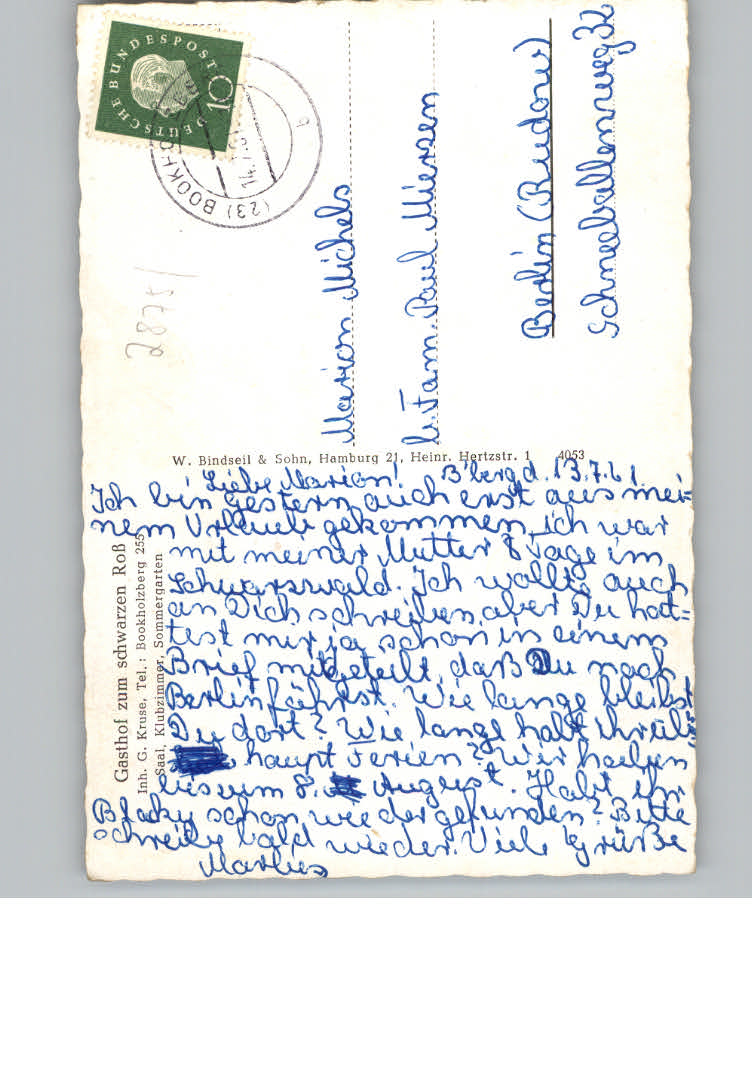 Liebe Marion! B'berg d. 13.7.61.
Ich bin gestern auch erst aus mei=
nem Urlaub gekommen, ich war
mit meiner Mutter 8 Tage im
Schwarzwald. Ich wollte auch
an Dich schreiben, aber Du hat=
test mir ja schon in einem
Brief mitgeteilt, daß Du nach
Berlin fährst. Wie lange bleibst
Du dort? Wie lange habt ihr üb=
haupt Ferien? Wir haben
bis zum 8. August. Habt ihr
Blacky schon wieder gefunden? Bitte
schreibe bald wieder. Viele Grüße
Marlies
Marion Michels
b. Fam. Paul Miersen
Berlin (Rudow)
Schneeballenweg 32
DEUTSCHE BUNDESPOST
10
(23) BOOKHO
b
2878/
W. Bindseil & Sohn, Hamburg 21, Heinr. Hertzstr. 1 4053
Gasthof zum schwarzen Roß
Inh. G. Kruse, Tel.: Bookholzberg 255
Saal, Klubzimmer, Sommergarten